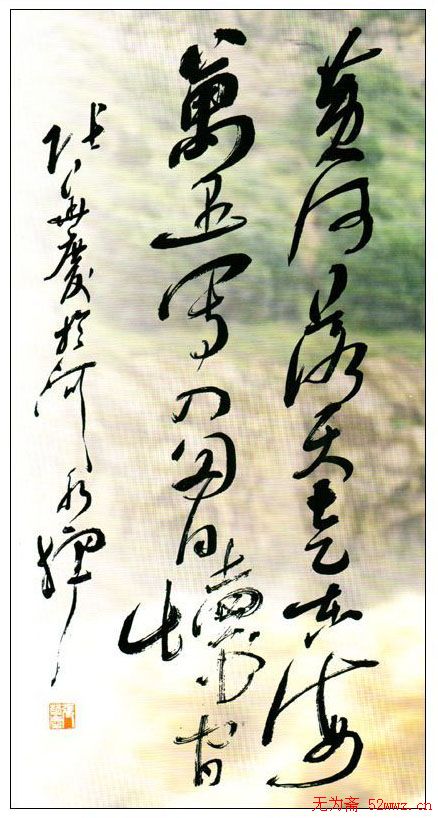 黄河落天走东海
萬里写入胸懷間
张華慶於
无为斋 52wwz.cn